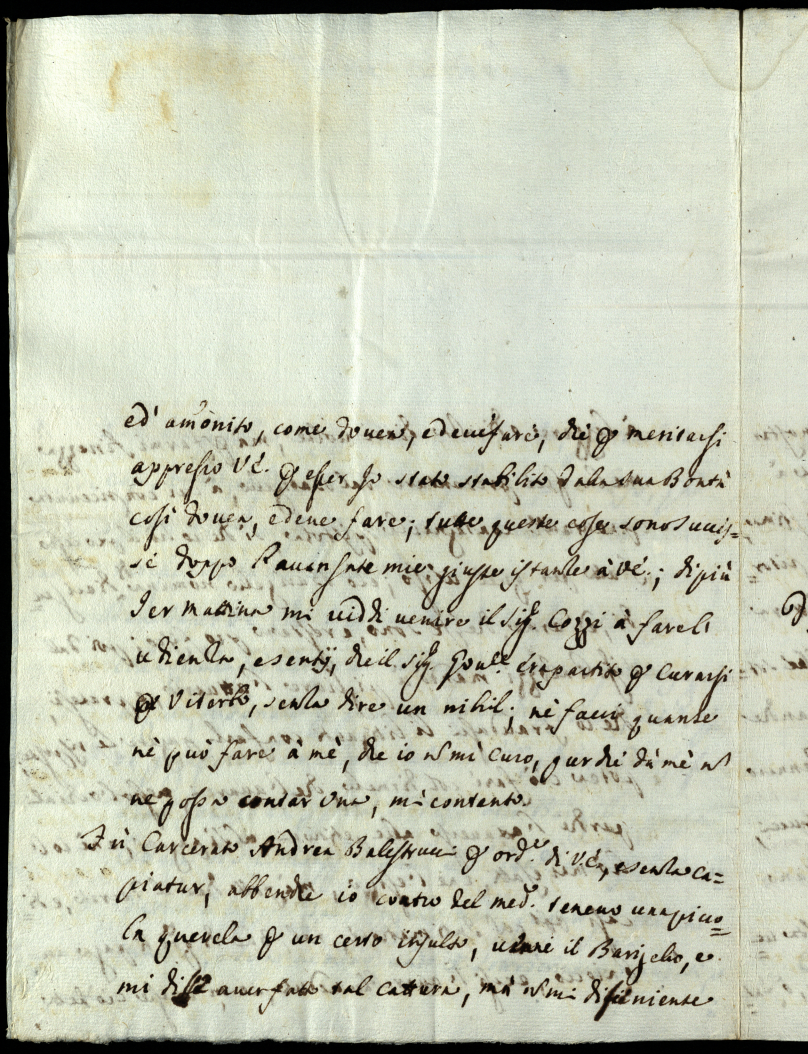 ed' amónito, come doueua, e deue fare, che p meritarsi
appresso V.E. p esser so stato stabilito dalla sua Bontà
così doueua, e deue fare; tutte queste cose sono succes=
se doppo l'auansate mie giuste istanze à V.E.; di più
Ier mattina mi uiddi uenire il Sig.r Cozzi à fare l'
udienza, e sentij, che il Sig.r Gou.re era partito p Curarsi
p Viterbo, senza dire un nihil; nè facci quante
nè può fare à mè, che io ñ mi curo, purchè dà mè ñ
ne possa contar una, mi contento.
Fù Carcerato Andrea Balestrucci p ord.e di V.E., e senza ca=
piatur, abbenche io contro del med.o teneuo una picco=
la querela p un certo insulto, uenne il Bargello, e
mi disse auer fatto tal cattura, mà ñ mi disse niente